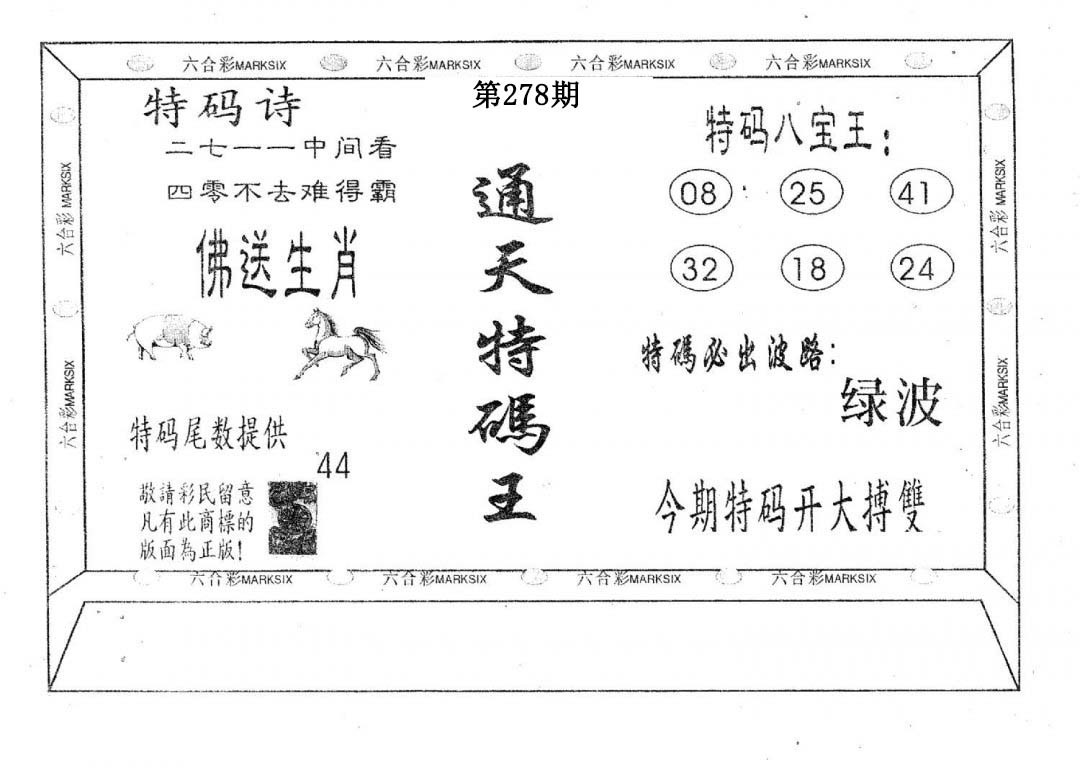 六合彩MARKSIX 六合彩MARKSIX 六合彩MARKSIX 六合彩MARKSIX
第278期
特码诗
二七一一中间看
四零不去难得霸
佛送生肖
特码尾数提供
44
敬請彩民留意
凡有此商標的
版面為正版!
通天特碼王
特码八宝王:
08 25 41
32 18 24
特碼必出波路:
绿波
今期特码开大搏雙
六合彩MARKSIX
六合彩MARKSIX
六合彩MARKSIX
六合彩MARKSIX
六合彩MARKSIX 六合彩MARKSIX 六合彩MARKSIX 六合彩MARKSIX